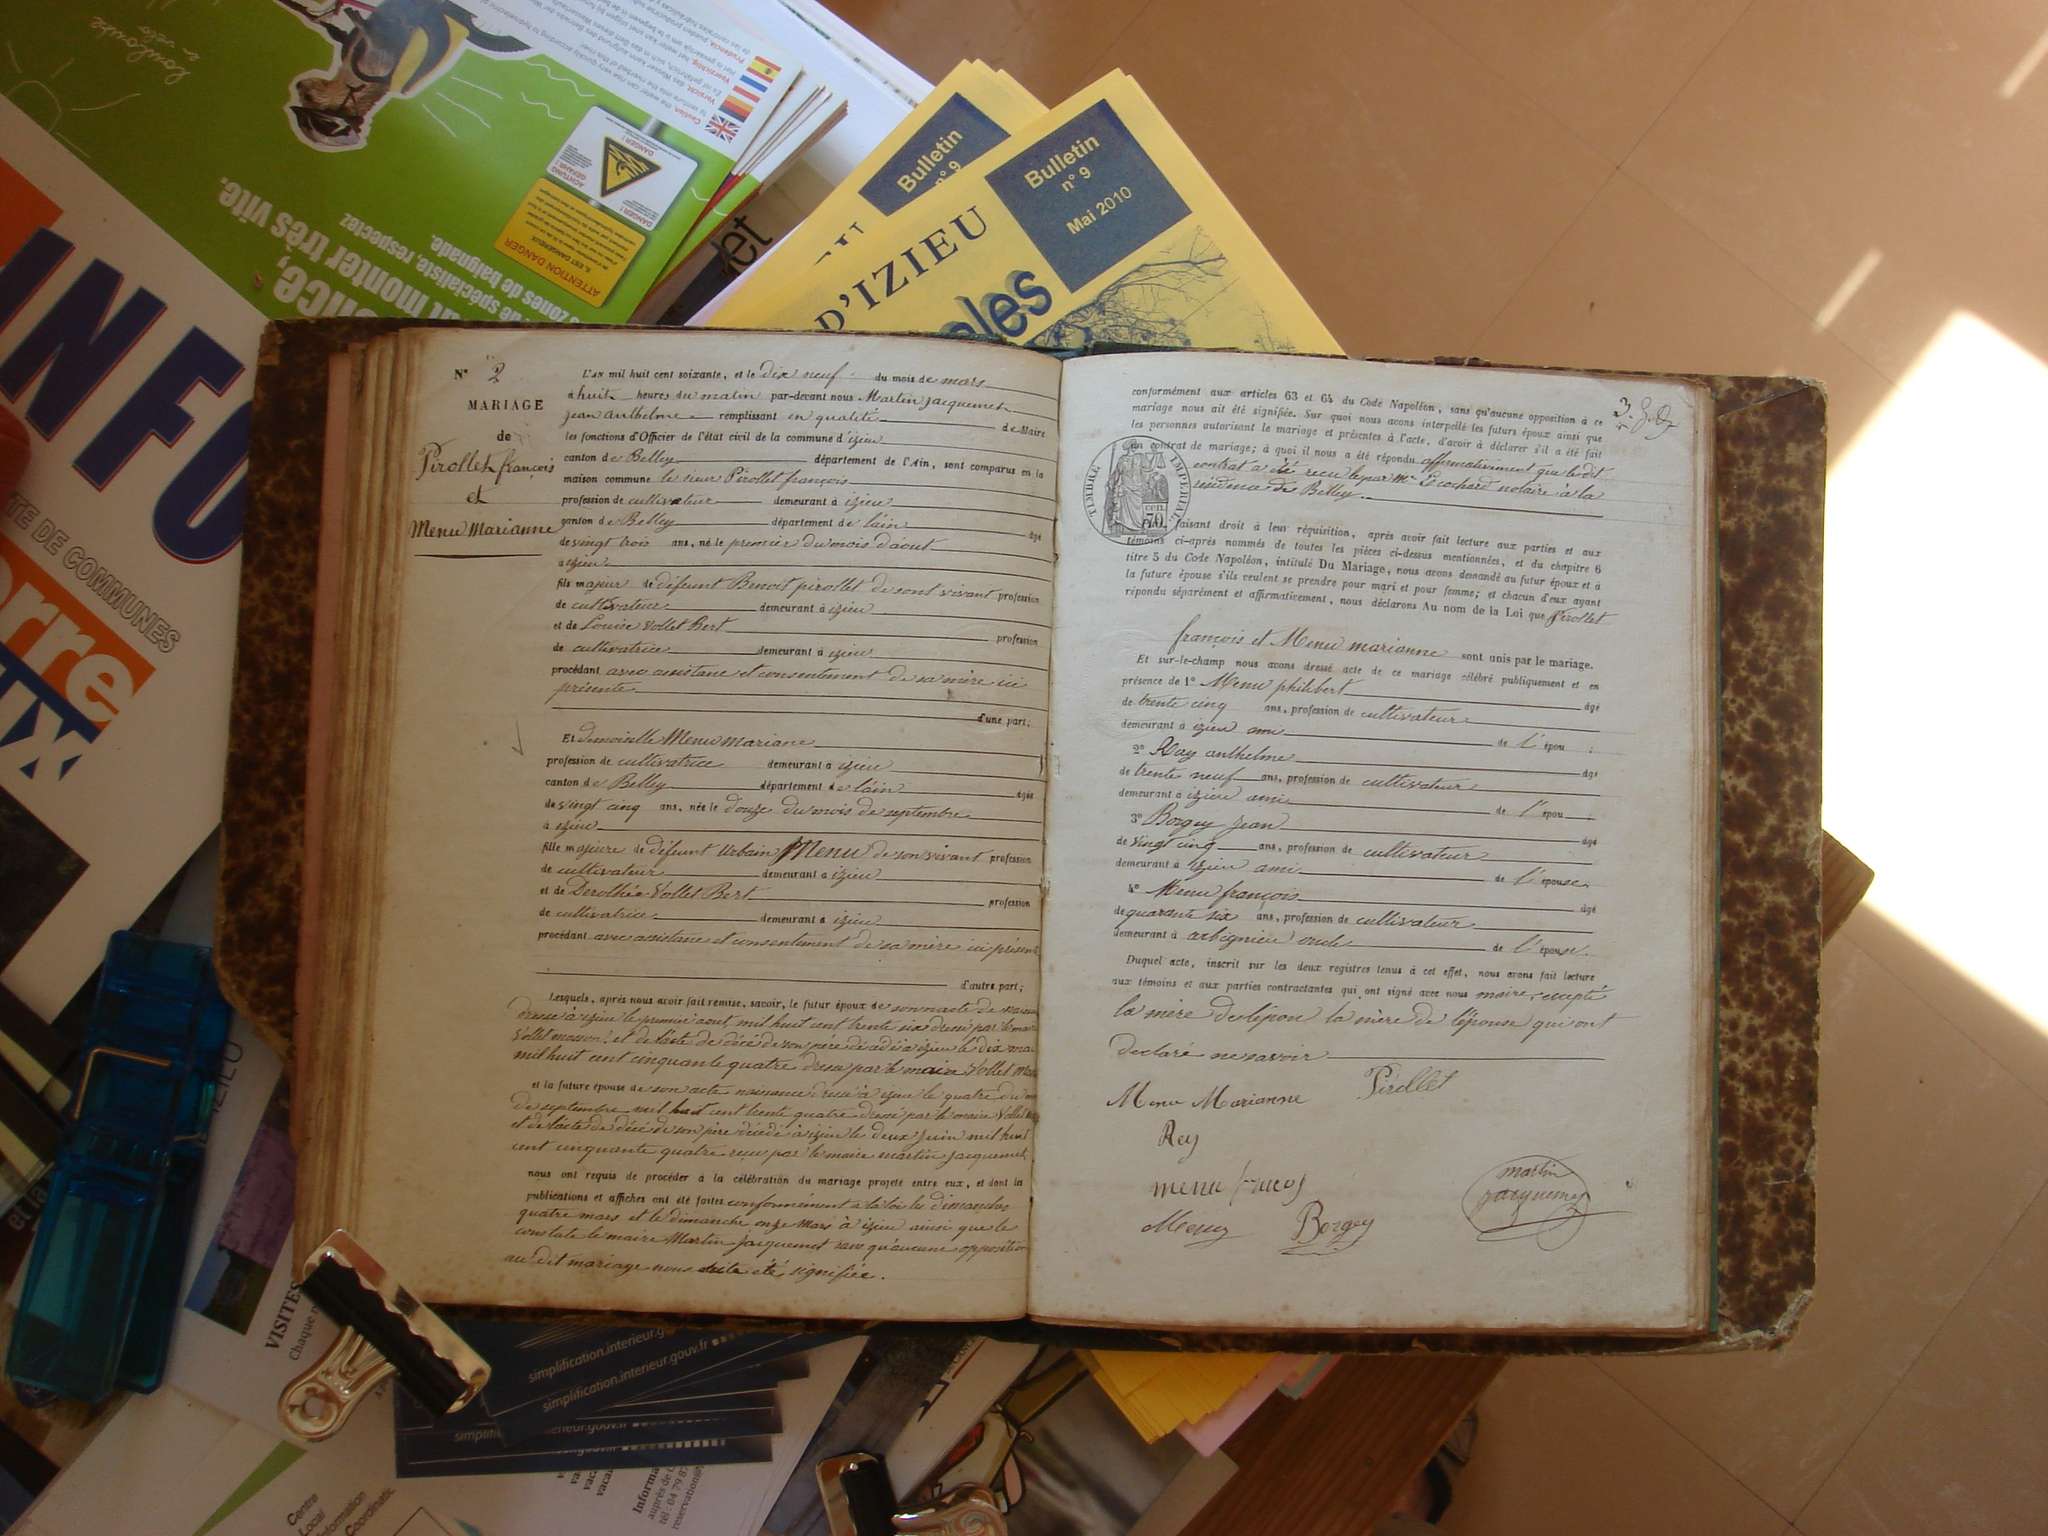 Bulletin
n° 9
Bulletin
n° 9
Mai 2010
D'IZIEU
INFO
TE DE COMMUNES
ATTENTION DANGER
DANGER !
monter très vite.
spécialiste, respectez
zones de baignade.
N° 2
MARIAGE
de
Pirollet françois
et
Menu Marianne
L'AN mil huit cent soixante, et le dix neuf du mois de mars
à huit heures du matin par-devant nous Martin Jacquemet
jean anthelme remplissant en qualité de Maire
les fonctions d'Officier de l'état civil de la commune d'izieu
canton de Belley département de l'Ain, sont comparus en la
maison commune le sieur Pirollet françois
profession de cultivateur demeurant à izieu
canton de Belley département de l'ain âgé
de vingt trois ans, né le premier du mois d'aout
à izieu
fils majeur de défeunt Benoit pirollet de sont vivant profession
de cultivateur demeurant à izieu
et de Louise Vollet Bert profession
de cultivatrice demeurant à izieu
procédant avec assistane et consentement de sa mère ici
présente
d'une part;
Et demoiselle Menu mariane
profession de cultivatrice demeurant à izieu
canton de Belley département de l'ain âgée
de vingt cinq ans, née le douze du mois de septembre
à izieu
fille majeure de défeunt Urbain Menu de son vivant profession
de cultivateur demeurant à izieu
et de Derothée Vollet Bert profession
de cultivatrice demeurant à izieu
procédant avec assistane et consentement de sa mère ici présent
d'autre part;
Lesquels, après nous avoir fait remise, savoir, le futur époux de son acte de
dressé à izieu le premier aout mil huit cent trente six dressé par le maire
Vollet et de l'acte de décé de son père décédé à izieu le dix mai
mil huit cent cinquante quatre dressé par le maire Vollet
et la future épouse de son acte naissance à izieu le quatre du
de septembre mil huit cent trente quatre dressé par le maire Vollet
et de l'acte de décé de son père décédé à izieu le deux juin mil huit
cent cinquante quatre reçu par le maire martin jacquemet
nous ont requis de procéder à la célébration du mariage projeté entre eux, et dont la
publications et affiches ont été faites conformément a la loi les dimanches
quatre mars et le dimanche onze mars à izieu ainsi que le
constate le maire Martin Jacquemet sans qu'aucune opposition
au dit mariage nous été signifiée.
3.
conformément aux articles 63 et 64 du Code Napoléon, sans qu'aucune opposition à ce
mariage nous ait été signifiée. Sur quoi nous avons interpellé les futurs époux ainsi que
les personnes autorisant le mariage et présentes à l'acte, d'avoir à déclarer s'il a été fait
un contrat de mariage; à quoi il nous a été répondu affirmativement que le dit
contrat a été recu par Me notaire à la
résidence de Belley.
TIMBRE IMPERIAL
70
faisant droit à leur réquisition, après avoir fait lecture aux parties et aux
témoins ci-après nommés de toutes les pièces ci-dessus mentionnées, et du chapitre 6
titre 5 du Code Napoléon, intitulé Du Mariage, nous avons demandé au futur époux et à
la future épouse s'ils veulent se prendre pour mari et pour femme; et chacun d'eux ayant
répondu séparément et affirmativement, nous déclarons Au nom de la Loi que Pirollet
françois et Menu marianne sont unis par le mariage.
Et sur-le-champ nous avons dressé acte de ce mariage célébré publiquement et en
présence de 1° Menu philibert âgé
de trente cinq ans, profession de cultivateur
demeurant à izieu ami de l'épou :
2° Ray anthelme âgé
de trente neuf ans, profession de cultivateur
demeurant à izieu ami de l'épou
3° Borgey jean âgé
de vingt cinq ans, profession de cultivateur
demeurant à izieu ami de l'épouse
4° Menu françois âgé
de quarante six ans, profession de cultivateur
demeurant à arbignieu oncle de l'épouse.
Duquel acte, inscrit sur les deux registres tenus à cet effet, nous avons fait lecture
aux témoins et aux parties contractantes qui ont signé avec nous maire, excepté
la mère de lépou la mère de l'épouse qui ont
déclaré ne savoir
Menu Marianne Pirollet
Rey
martin
jacquemet
menu
Menu Borgey
VISITES
simplification.interieur.gouv.fr
simplification.interieur.gouv.fr
Centre
Local
Information
Coordination